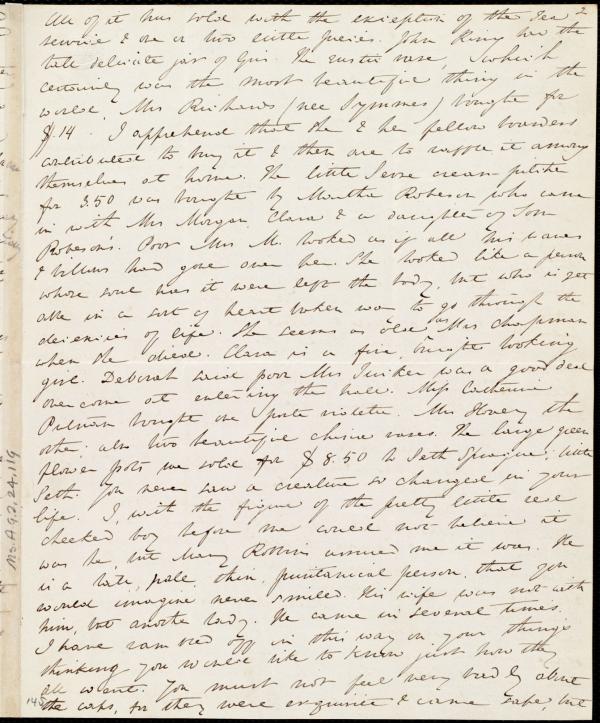 All of it has sold with the exception of the Tea 2
service & one or two little pieces. John King has the
tall delicate jar of Gris. The rustic vase, which
certainly was the most beautiful thing in the
world, Mrs Richards (nee Symmes) bought for
$14. I apprehend that she & her fellow boarders
contributed to buy it & then are to raffle it among
themselves at home. The little Sevre cream pitcher
for 3.50 was bought by Martha Robeson who came
in with Mrs Morgan, Clara & a daughter of Tom
Robeson's. Poor Mrs M. looked as if all his waves
& billows had gone over her. She looked like a person
whose soul has it were left the body, but who is yet
able in a sort of heart broken way to go through the
decencies of life. She seems as old as Mrs Chapman
when she died. Clara is a fine, bright looking
girl. Deborah said poor Mrs was a good deal
overcome at entering the hall. Miss Catherine
Putnam bought one porte violette. Mrs Hovey the
other: also two beautiful china vases. The large green
flower pots we sold for $8.50 to Seth Sprague, little
Seth. You never saw a creature so changed in your
life. I, with the figure of the pretty little red
cheeked boy before me could not believe it
was he, but Mary Rollins assured me it was. He
is a tall, pale, thin, puritanical person, that you
would imagine never smiled. His wife was not with
him, but another lady. He came in several times.
I have rambled off in this way on your things
thinking you would like to know just how they
all went. You must not feel very badly about
the caps, for they were exquisite & came safe, but
Ms.A.9.2.24,119
145